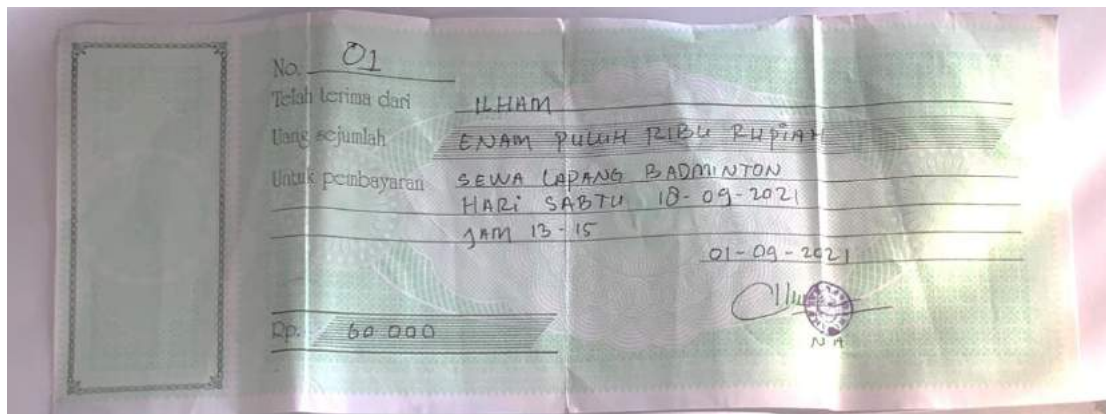 No. 01
Telah terima dari ILHAM
Uang sejumlah ENAM PULUH RIBU RUPIAH
Untuk pembayaran SEWA LAPANG BADMINTON
HARI SABTU 18-09-2021
JAM 13-15
01-09-2021
Rp. 60 000